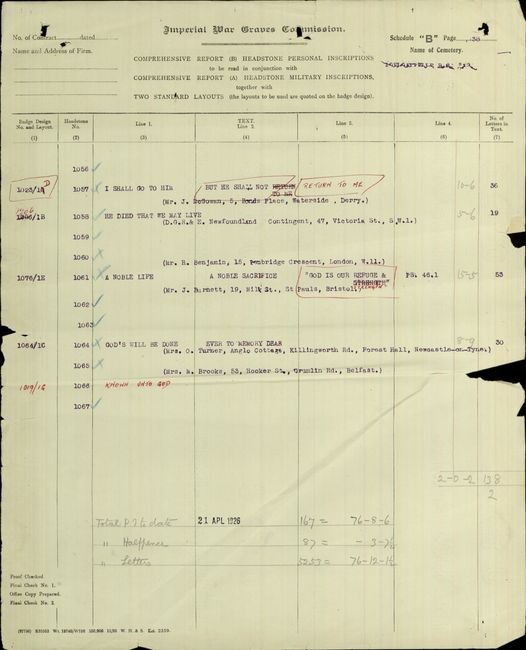 Imperial War Graves Commission.
No. of Contract dated
Schedule "B" Page
Name and Address of Firm.
Name of Cemetery.
COMPREHENSIVE REPORT (B) HEADSTONE PERSONAL INSCRIPTIONS
to be read in conjunction with
COMPREHENSIVE REPORT (A) HEADSTONE MILITARY INSCRIPTIONS,
together with
TWO STANDARD LAYOUTS (the layouts to be used are quoted on the badge design).
Badge Design No. and Layout. Headstone No. Line 1. TEXT. Line 2. Line 3. Line 4. No. of Letters in Text.
(1) (2) (3) (4) (5) (6) (7)
1056
1023/1 D 1057 I SHALL GO TO HIM BUT HE SHALL NOT RETURN TO ME RETURN TO ME 10-6 36
(Mr. J. McGowan, 5, Bonds Place, Waterside, Derry.)
1058 HE DIED THAT WE MAY LIVE 19
(D.G.R.& E. Newfoundland Contingent, 47, Victoria St., S.W.1.)
1059
1060
(Mr. R. Benjamin, 15, Pembridge Crescent, London, W.11.)
1076/1E 1061 A NOBLE LIFE A NOBLE SACRIFICE "GOD IS OUR REFUGE & STRENGTH" STRENGTH" PS. 46.1 15-5 53
(Mr. J. Burnett, 19, Milk St., St Pauls, Bristol.)
1062
1063
1064/1G 1064 GOD'S WILL BE DONE EVER TO MEMORY DEAR 8-9 30
(Mrs. O. Turner, Anglo Cottage, Killingworth Rd., Forest Hall, Newcastle-on-Tyne.)
1065
(Mrs. M. Brooks, 53, Hooker St., Crumlin Rd., Belfast.)
1019/1G 1066 KNOWN UNTO GOD
1067
2-0-2 138
2
Total P.I. to date 21 APL 1926 167 = 76-8-6
" Halfpence 87 = - 3-7½
" Letters 5253 = 76-12-1½
Proof Checked.
Final Check No. 1.
Office Copy Prepared.
Final Check No. 2.